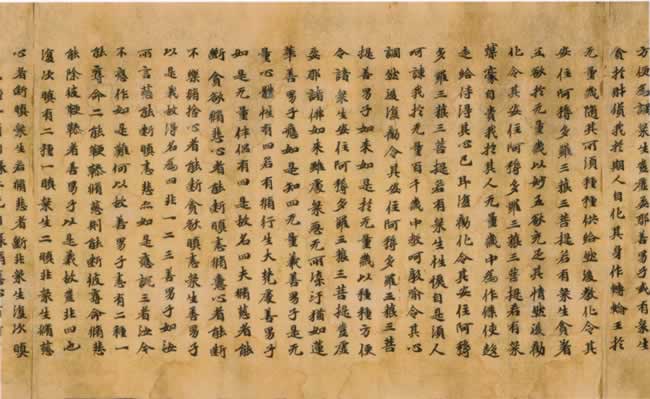 方便為調衆生豈虛妄耶善男子或有衆生
貪於財貨我於其人自化其身作轉輪王於
无量歲隨其所須種種供給然後教化令其
安住阿耨多羅三藐三菩提若有衆生貪著
五欲於无量歲以妙五欲充足其情然後勸
化令其安住阿耨多羅三藐三菩提若有衆
生榮豪自貴我於其人无量歲中為作僕使趍
走給侍得其心已即復勸化令其安住阿耨
多羅三藐三菩提若有衆生性佷自是須人
呵諫我於无量百千歲中教呵敦喻令其心
調然後復勸令其安住阿耨多羅三藐三菩
提善男子如來如是於无量歲以種種方便
令諸衆生安住阿耨多羅三藐三菩提豈虛
妄耶諸佛如來雖處衆惡无所染汙猶如蓮
華善男子應如是知四无量義善男子是无
量心體性有四若有脩行生大梵處善男子
如是无量伴侶有四是故名四夫脩慈者能
斷貪欲脩悲心者能斷瞋恚脩喜心者能斷
不樂脩捨心者能斷貪欲瞋恚衆生善男子
以是義故得名為四非一二三善男子如汝
所言慈能斷瞋悲亦如是應說三者汝今
不應作如是難何以故善男子恚有二種一
能奪命二能鞭撻脩慈則能斷彼奪命脩悲
能除彼鞭撻善男子以是義故豈非四也
復次瞋有二種一瞋衆生二瞋非衆生脩慈
心者斷瞋衆生脩悲心者斷非衆生復次瞋